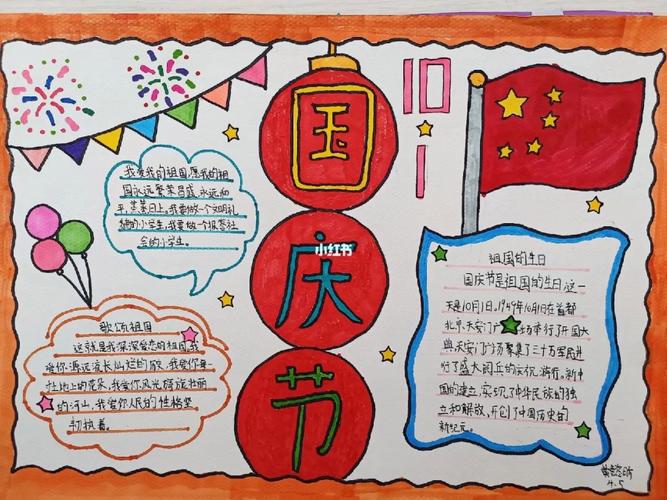 国
庆
节
小红书
10
1
我爱我的祖国,愿我的祖
国永远繁荣昌盛,永远和
平,蒸蒸日上。我要做一个文明礼
貌的小学生,我要做一个报答社
会的小学生。
歌颂祖国
这就是我深深爱恋的祖国。我
爱你源远流长灿烂的
壮地上的花朵,我爱你风光旖旎壮丽
的河山,我爱你人民的性格坚
韧执着。
祖国的生日
国庆节是祖国的生日,这一
天是10月1日,1949年10月1日在首都
北京天安门广场举行了开国大
典,天安门广场聚集了三十万军民进
行了盛大阅兵的庆祝游行。新中
国的建立,实现了中华民族的独
立和解放,开创了中国历史的
新纪元。
4.5